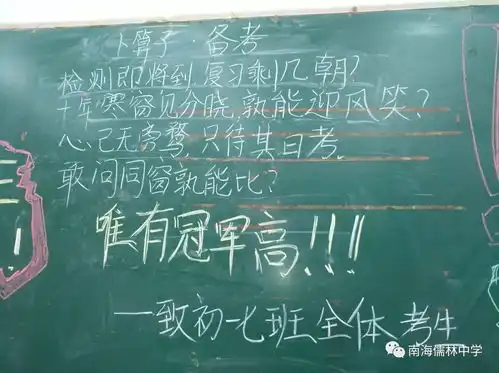 卜算子·备考
检测即将到,复习剩几朝?
十年寒窗见分晓,孰能迎风笑?
心已无旁骛,只待某日考.
敢问同窗孰能比?
唯有冠军高!!!
一致初一七班全体考生
南海儒林中学